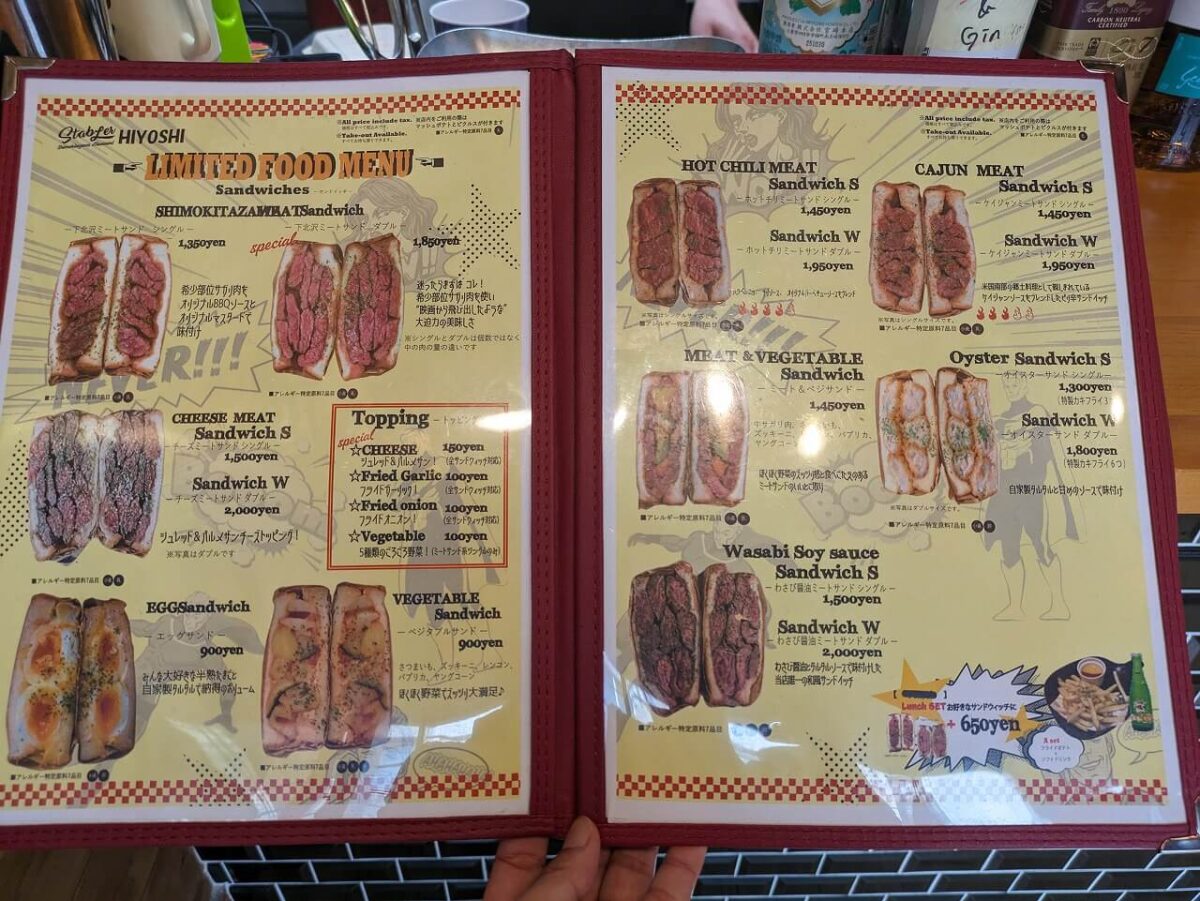 HIYOSHI
LIMITED FOOD MENU
Sandwiches
※All price include tax.
※Take-out Available.
SHIMOKITAZAWA MEAT Sandwich
ー下北沢ミートサンド シングルー
1,350yen
希少部位サガリ肉を
オリジナルBBQソースと
オリジナルマスタードで
味付け
■アレルギー特定原料7品目
special
ー下北沢ミートサンド ダブルー
1,850yen
迷ったらまずは コレ!
希少部位サガリ肉を使い
"映画から飛び出したような"
大迫力の美味しさ
※シングルとダブルは個数ではなく
中の肉の量の違いです
■アレルギー特定原料7品目
NEVER!!!
CHEESE MEAT
Sandwich S
ーチーズミートサンド シングルー
1,500yen
Sandwich W
ーチーズミートサンド ダブルー
2,000yen
シュレッド&パルメザンチーズトッピング!
※写真はダブルです
■アレルギー特定原料7品目
Topping
special
☆CHEESE 150yen
シュレッド&パルメザン! (全サンドウィッチ対応)
☆Fried Garlic 100yen
フライドガーリック! (全サンドウィッチ対応)
☆Fried onion 100yen
フライドオニオン! (全サンドウィッチ対応)
☆Vegetable 100yen
5種類のごろごろ野菜! (ミートサンド系シングルのみ)
EGG Sandwich
エッグサンド ー
900yen
みんな大好きな半熟たまごと
自家製タルタルで納得のボリューム
■アレルギー特定原料7品目
VEGETABLE
Sandwich
ーベジタブルサンドー
900yen
さつまいも、ズッキーニ、レンコン、
パプリカ、ヤングコーン
ほくほく野菜でズッシリ大満足♪
■アレルギー特定原料7品目
※All price include tax.
※Take-out Available.
HOT CHILI MEAT
Sandwich S
ーホットチリミートサンド シングルー
1,450yen
Sandwich W
ーホットチリミートサンド ダブルー
1,950yen
※写真はシングルサイズです。
■アレルギー特定原料7品目
CAJUN MEAT
Sandwich S
ーケイジャンミートサンド シングルー
1,450yen
Sandwich W
ーケイジャンミートサンド ダブルー
1,950yen
米国南部の郷土料理として親しまれている
ケイジャンソースをブレンドしたピリ辛サンドイッチ
※写真はシングルサイズです。
■アレルギー特定原料7品目
MEAT & VEGETABLE
Sandwich
ーミート&ベジサンドー
1,450yen
ズッキーニ、 パプリカ、
ヤングコーン
■アレルギー特定原料7品目
Oyster Sandwich S
ーオイスターサンド シングルー
1,300yen
Sandwich W
ーオイスターサンド ダブルー
1,800yen
(特製カキフライ6つ)
自家製タルタルと甘めのソースで味付け
※写真はダブルサイズです。
■アレルギー特定原料7品目
Wasabi Soy sauce
Sandwich S
ーわさび醤油ミートサンド シングルー
1,500yen
Sandwich W
ーわさび醤油ミートサンド ダブルー
2,000yen
わさび醤油とタルタルソースで味付した
当店唯一の和風サンドイッチ
■アレルギー特定原料7品目
Lunch SET お好きなサンドウィッチに
+ 650yen
A set
フライドポテト
+
ソフトドリンク
& Gin
CARBON NEUTRAL
CERTIFIED